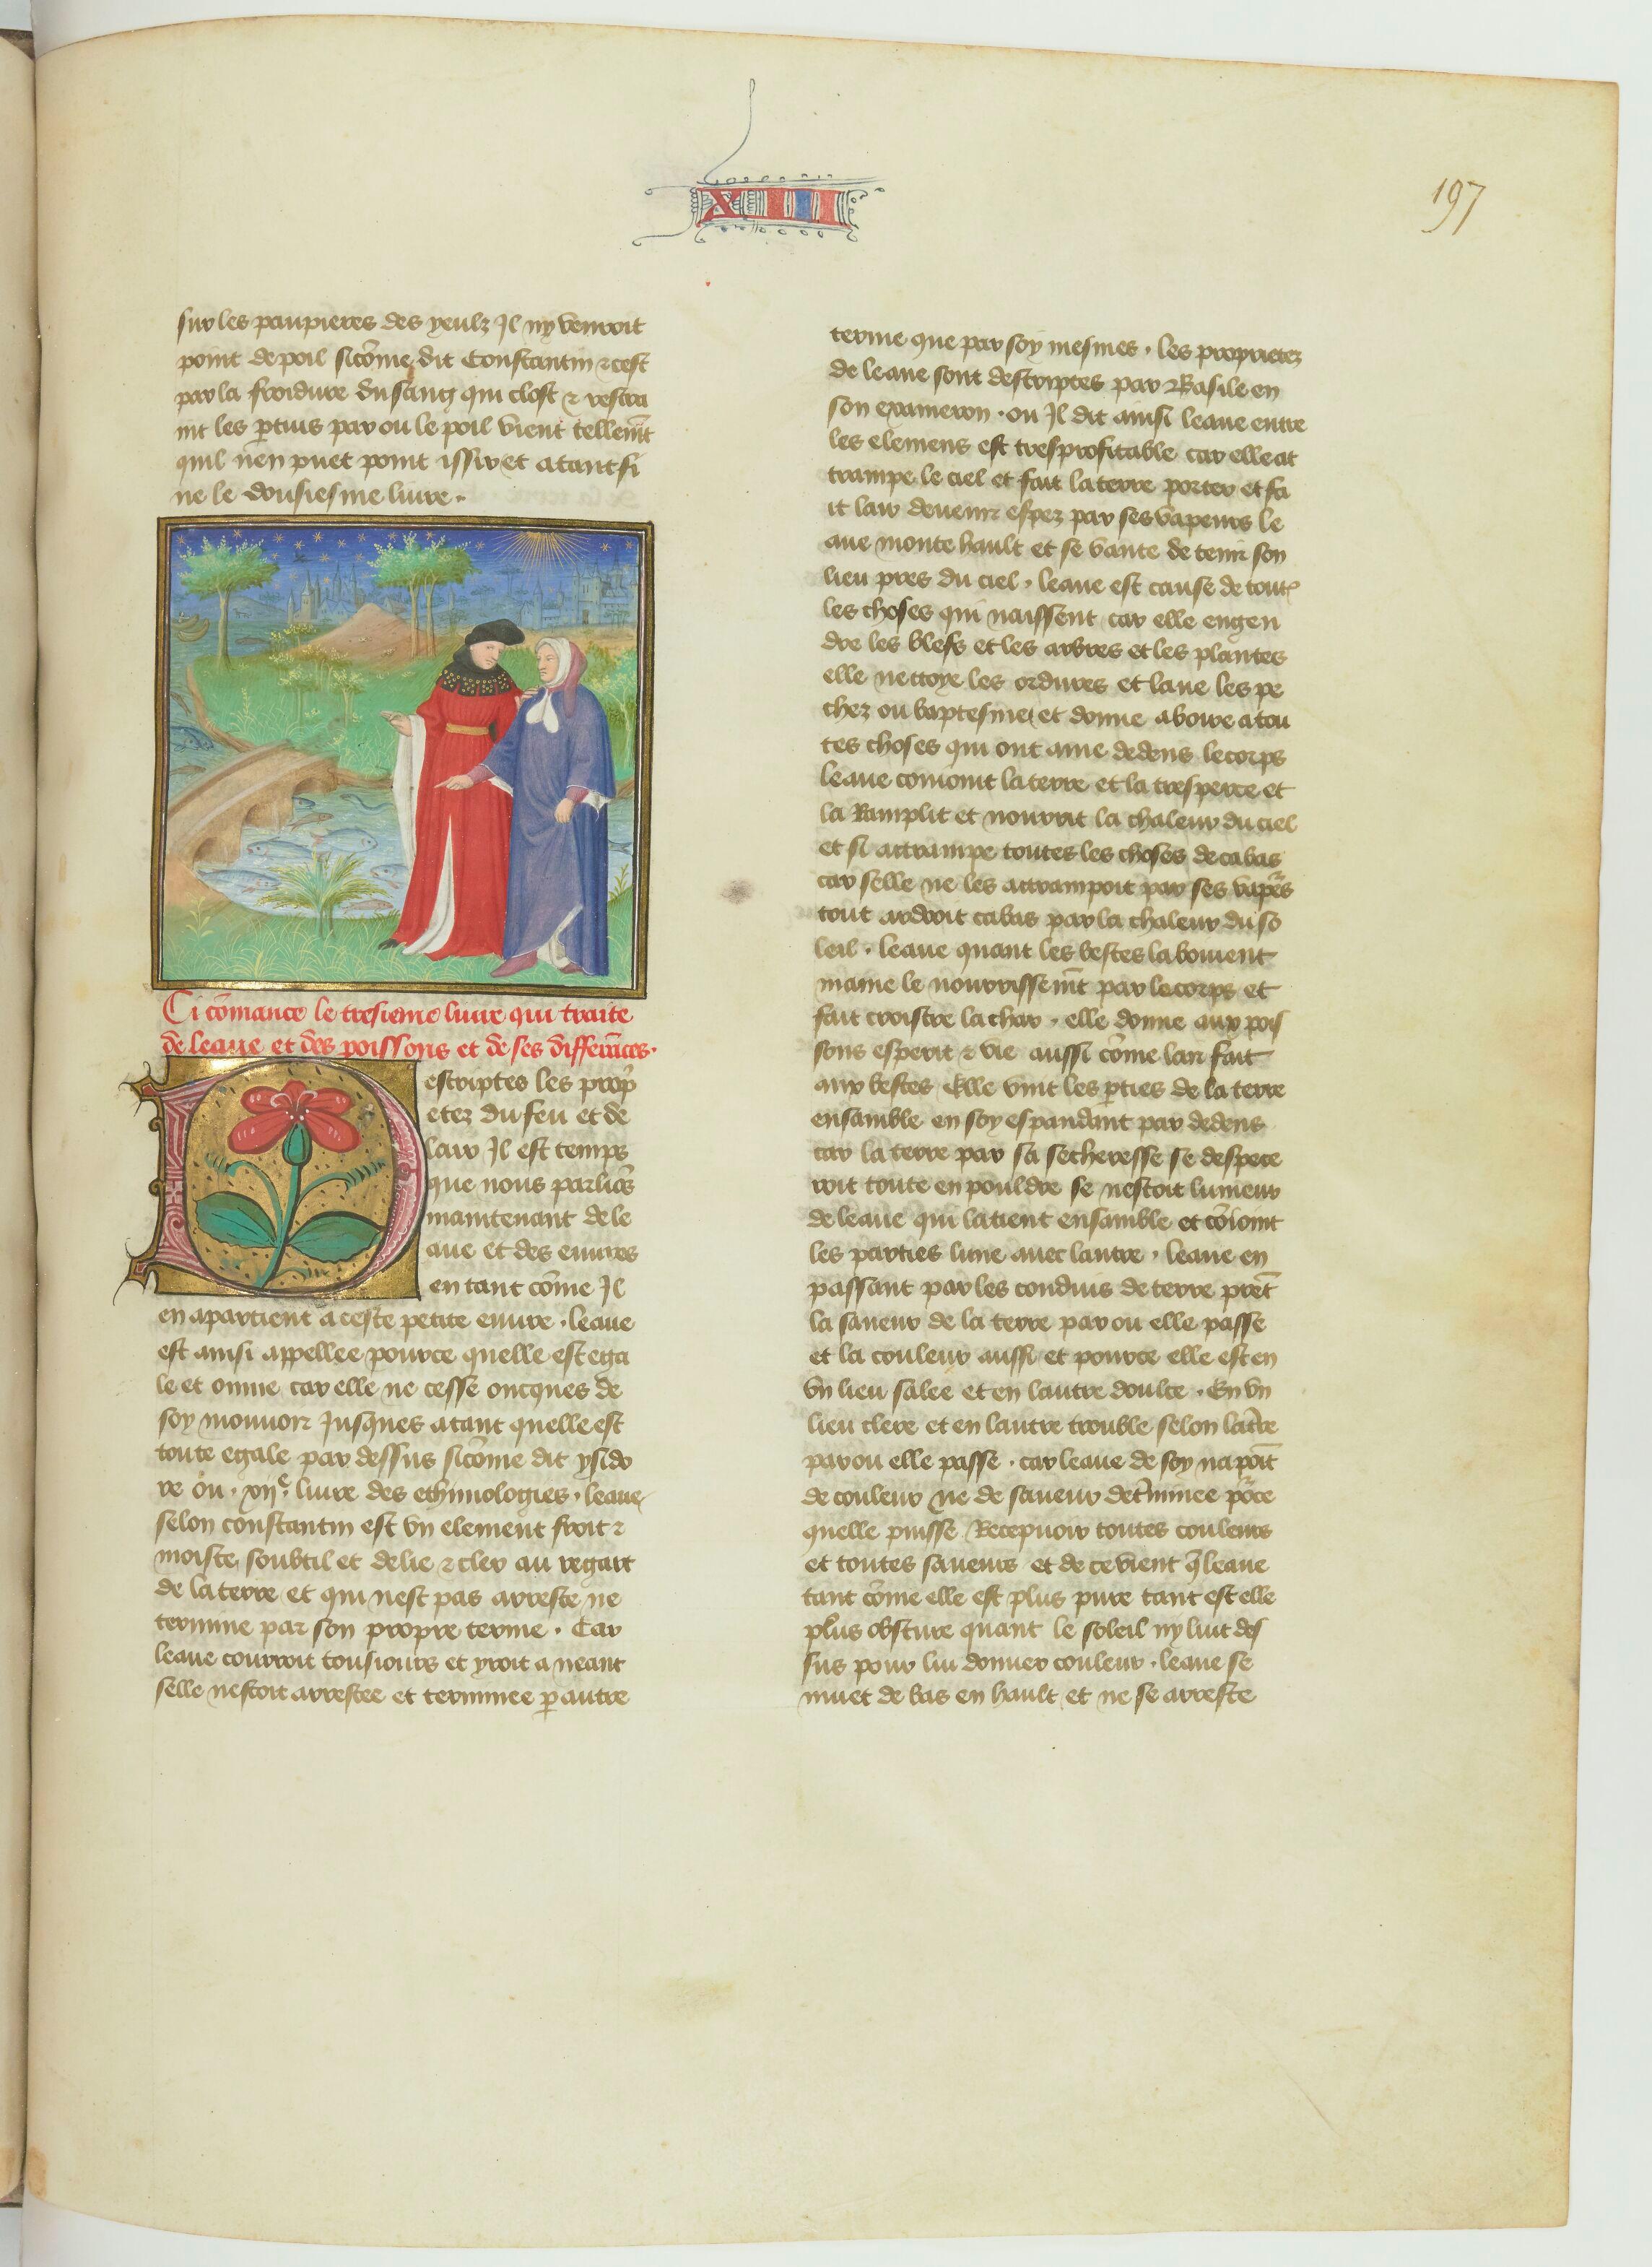 XIII
197
sur les paupieres des yeulz Il ny venroit
point de poil sicõme dit Constantin ⁊ cest
par la froidure du sang qui clost ⁊ restra
int les ꝑtuis par ou le poil vient tellemẽt
quil nen puet point issir et atant fi
ne le dousiesme liure .
Ci cõmance le tresieme liure qui traite
de leaue et des poissons et de ses differẽces .
Descriptes les propͥ
etez du feu et de
lair Il est temps
que nous parliõs
maintenant de le
aue et des euures
en tant cõme Il
en apartient a ceste petite euure . leaue
est ainsi appellee pource quelle est ega
le et onnie car elle ne cesse oncques de
soy mouuoir Jusques atant quelle est
toute egale par dessus sicõme dit ysido
re ou . xijͤ. liure des ethimologies . leaue
selon constantin est vn element froit ⁊
moiste soubtil et delie ⁊ cler au regart
de la terre et qui nest pas arreste ne
termine par son propre terme . Car
leaue courroit tousiours et yroit a neant
selle nestoit arrestee et terminee ꝑ autre
terme que par soy mesmes . les proprietez
de leaue sont descriptes par Basile en
son exameron . ou Il dit ainsi leaue entre
les elemens est tresprofitable car elle at
trampe le ciel et fait la terre porter et fa
it lair deuenir espez par ses vapeurs le
aue monte hault et se vante de tenir son
lieu pres du ciel . leaue est cause de toutꝭ
les choses qui naissent car elle engen
dre les blefs et les arbres et les plantes
elle nettoye les ordures et laue les pe
chez ou baptesme et donne a boire a tou
tes choses qui ont ame dedens le corps
leaue conioint la terre et la tresperce et
la Ramplit et nourrit la chaleur du ciel
et si attrampe toutes les choses de cabas
car selle ne les attrampoit par ses vapẽs
tout ardroit cabas par la chaleur du so
leil . leaue quant les bestes la boiuent
maine le nourrissemẽt par le corps et
fait croistre la char . elle donne aux pois
sons esperit ⁊ vie aussi cõme lair fait
aux bestes Elle vnit les ꝑties de la terre
ensamble en soy espandant par dedens
car la terre par sa secheresse se despece
roit toute en pouldre se nestoit lumeur
de leaue qui la tient ensamble et cõioint
les parties lune auec lautre . leaue en
passant par les conduis de terre prẽt
la saueur de la terre par ou elle passe
et la couleur aussi et pource elle est en
vn lieu salee et en lautre doulce . En vn
lieu clere et en lautre trouble selon la tr̃re
par ou elle passe . car leaue de soy na poĩt
de couleur ne de saueur det̃minee põce
quelle puisse Recepuoir toutes couleurs
et toutes saueurs et de ce vient q̃ leaue
tant cõme elle est plus pure tant est elle
plus obscure quant le soleil ny luit des
sus pour lui donner couleur . leaue se
muet de bas en hault et ne se arreste